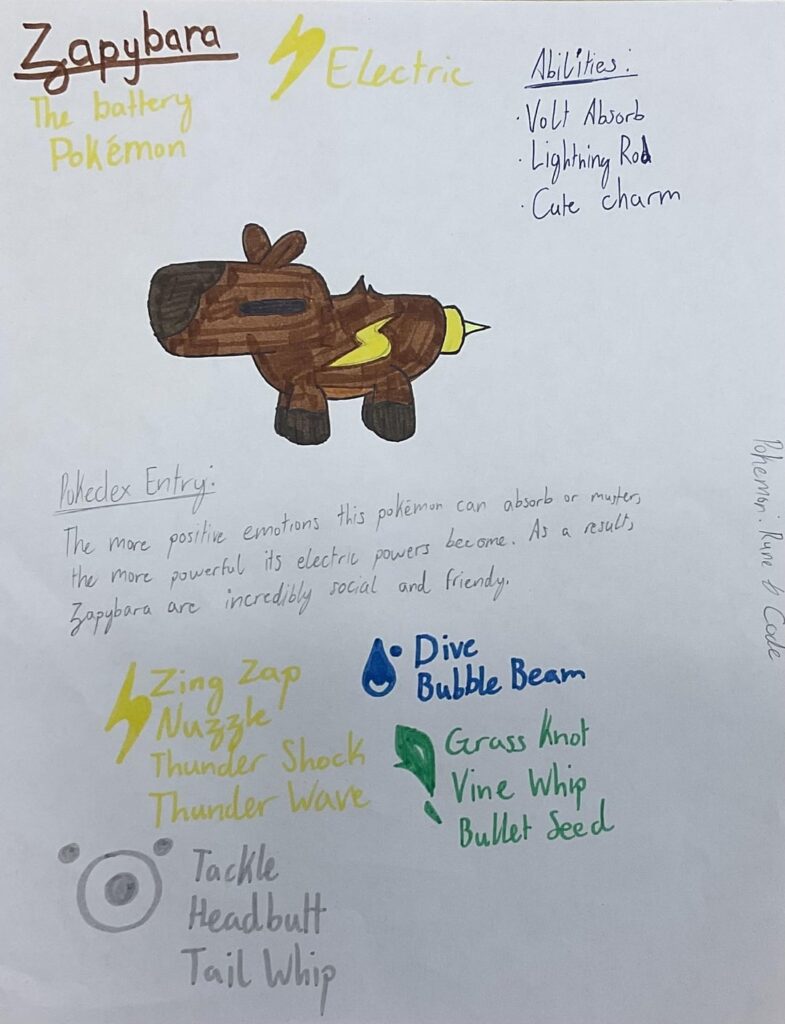 Zapybara
The battery
Pokémon
Electric
Abilities:
· Volt Absorb
· Lightning Rod
· Cute charm
Pokedex Entry:
The more positive emotions this pokémon can absorb or muster,
the more powerful its electric powers become. As a result,
Zapybara are incredibly social and friendly.
Zing Zap
Nuzzle
Thunder Shock
Thunder Wave
Dive
Bubble Beam
Grass Knot
Vine Whip
Bullet Seed
Tackle
Headbutt
Tail Whip
Pokemon: Rune & Code